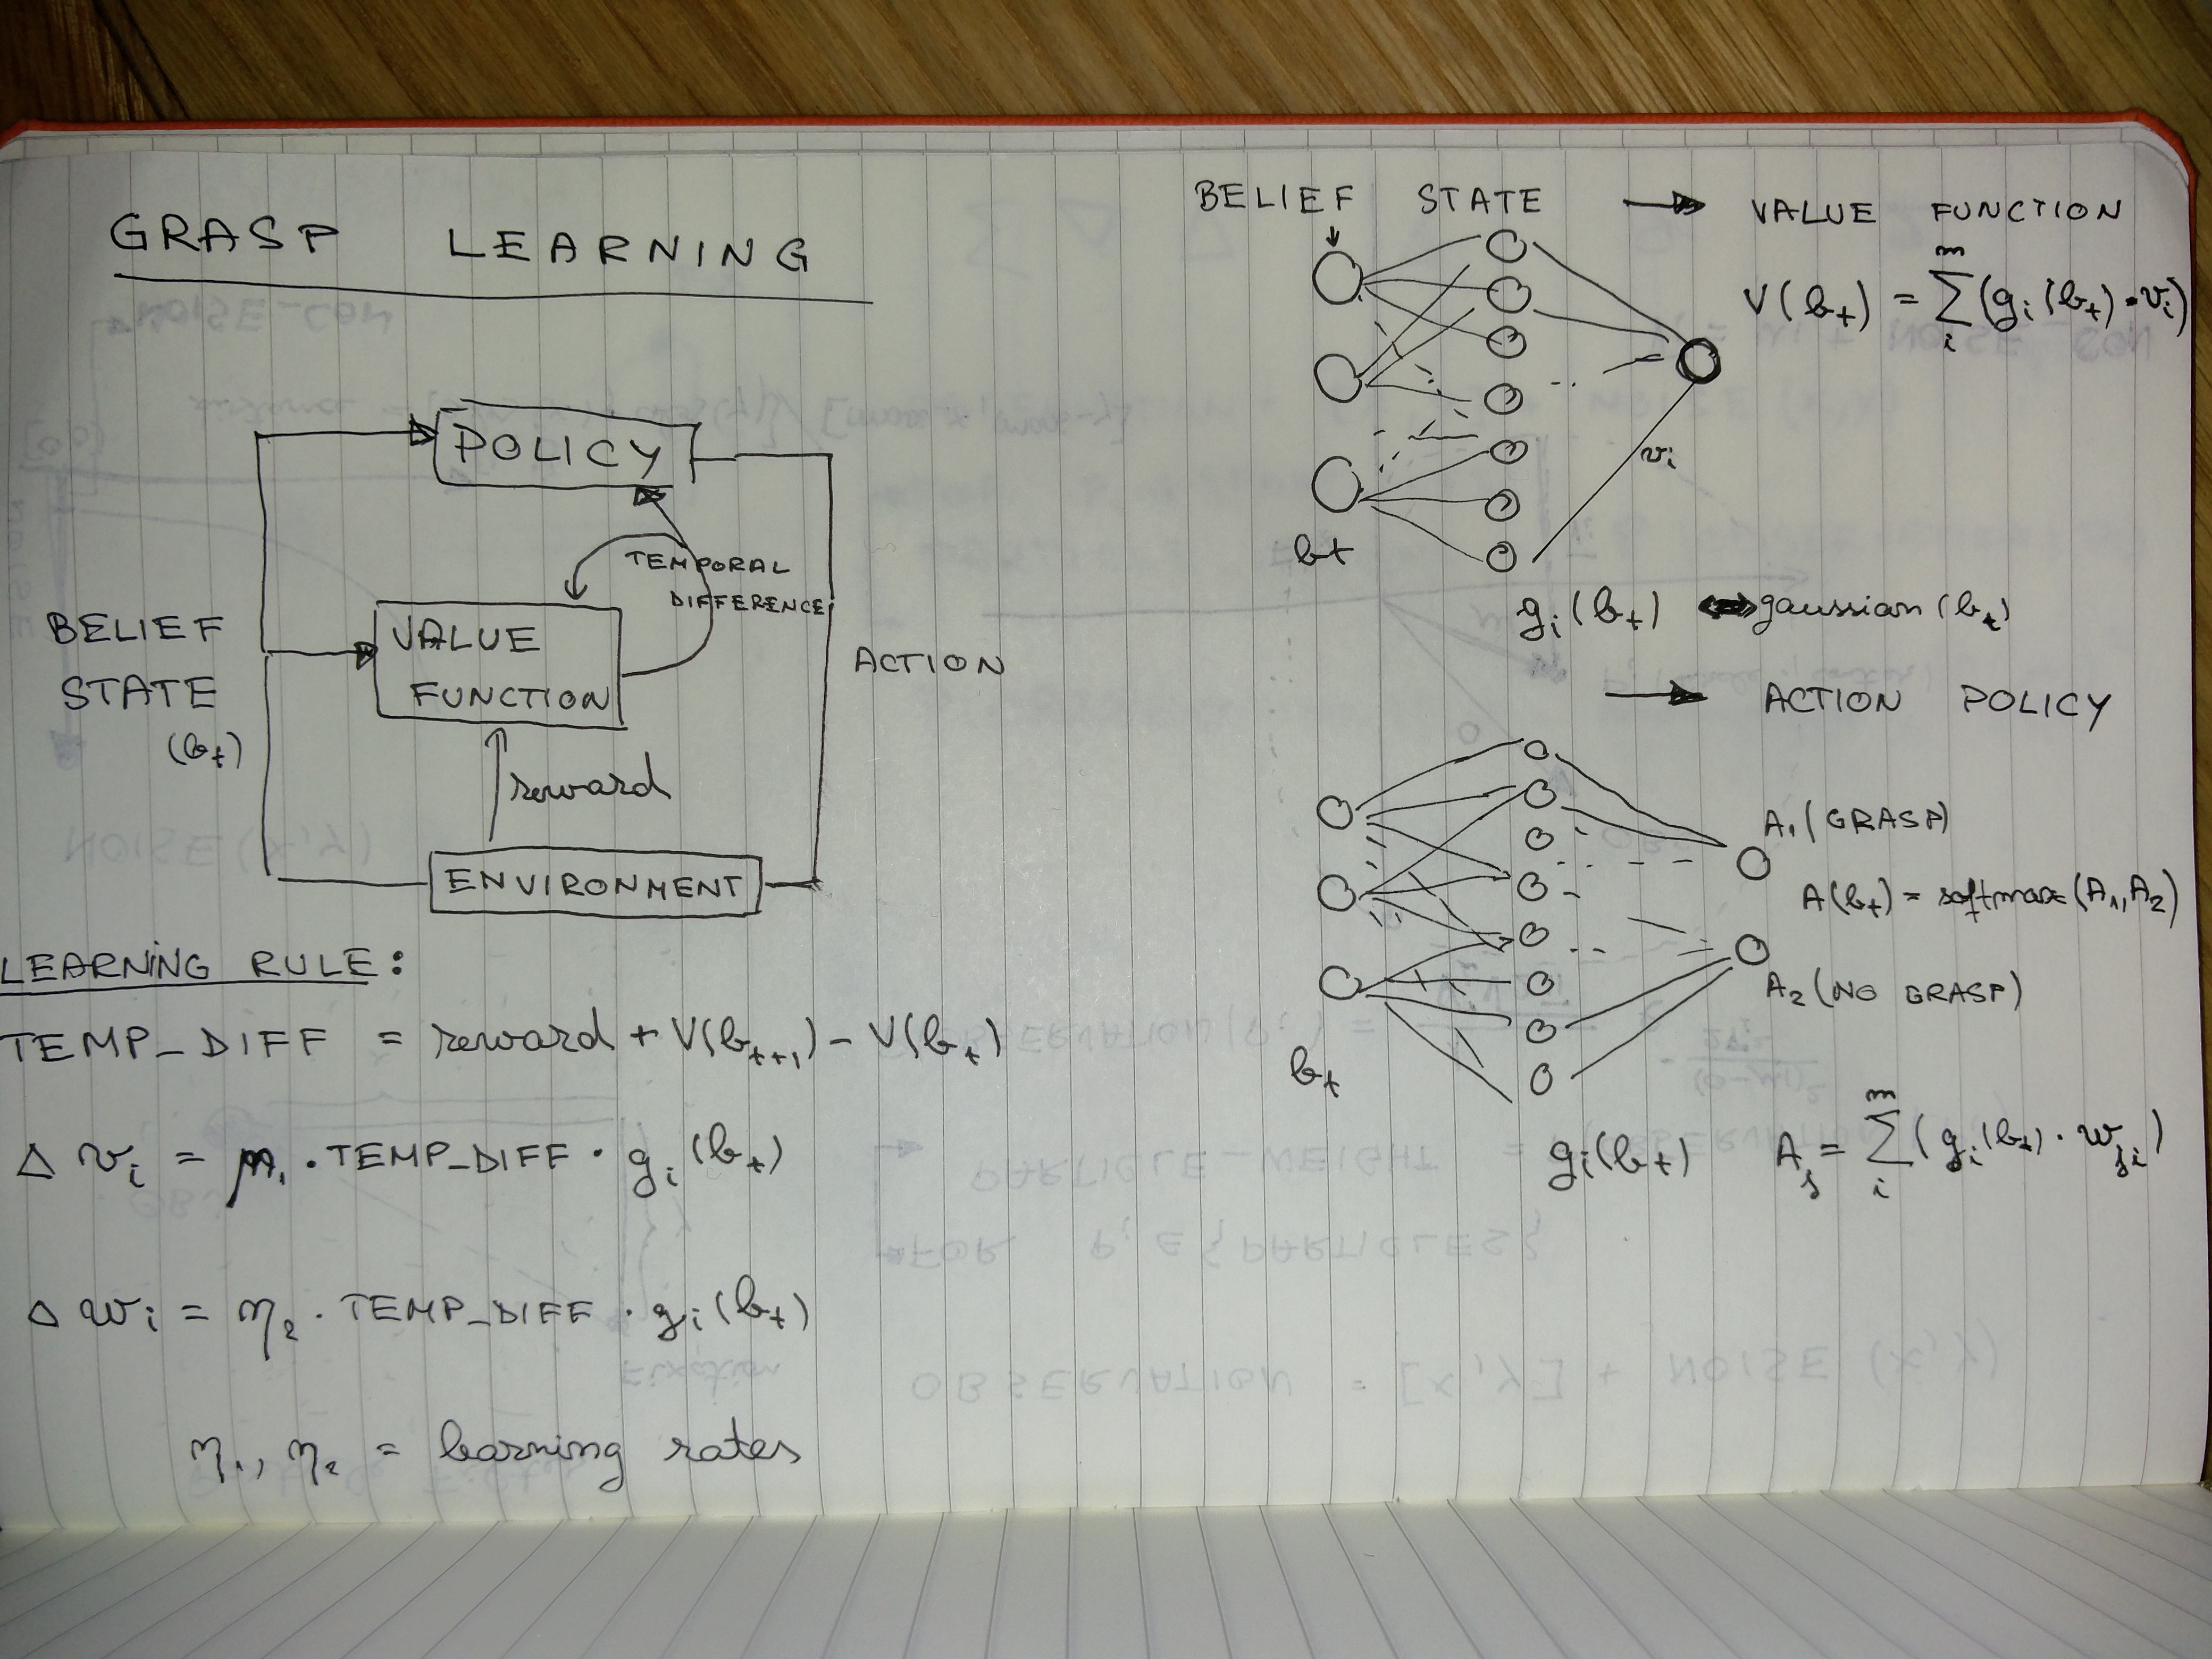 GRASP LEARNING
POLICY
TEMPORAL
DIFFERENCE
BELIEF
STATE
(b_t)
VALUE
FUNCTION
ACTION
reward
ENVIRONMENT
LEARNING RULE:
TEMP_DIFF = reward + V(b_{t+1}) - V(b_t)
Δ v_i = η_1 · TEMP_DIFF · g_i (b_t)
Δ w_i = η_2 · TEMP_DIFF · g_i (b_t)
η_1, η_2 = learning rates
BELIEF STATE → VALUE FUNCTION
V(b_t) = Σ_i^m (g_i (b_t) · v_i)
v_i
b_t
g_i (b_t) ↔ gaussian (b_t)
→ ACTION POLICY
A_1 (GRASP)
A(b_t) = softmax (A_1, A_2)
A_2 (NO GRASP)
b_t
g_i (b_t) A_j = Σ_i^m (g_i (b_t) · w_{ji})